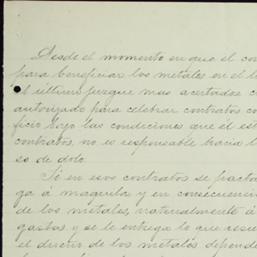 Desde el momento en que el con
para beneficiar los metales en el l
el último juzgue mas acertadas c
autorizado para celebrar contratos co
ficio bajo las condiciones que él est
contratos no es responsable hacia l
so de dolo.
Si en esos contratos se pacta
ga á maquila y en consecuenci
de los metales, naturalmente á
gastos y se le entrega lo que resu
el dueño de los metales depende